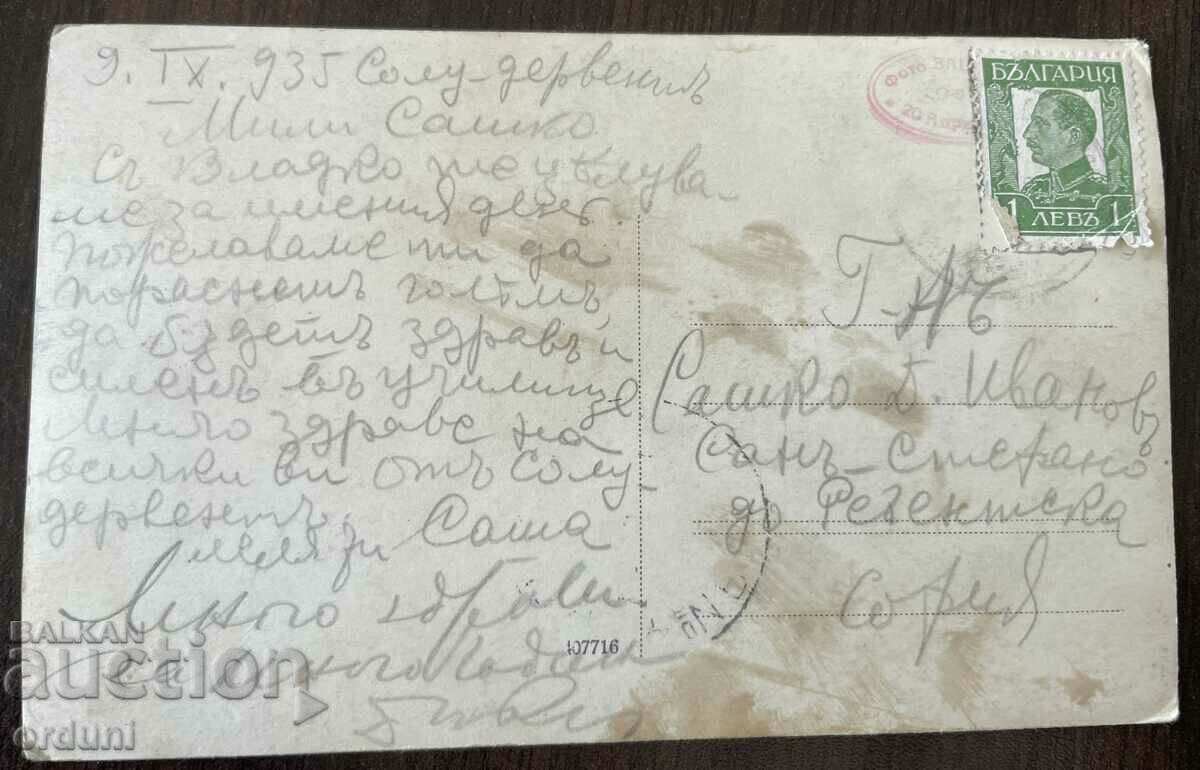 9. IX. 935 Солу-дервентъ
Мили Сашко
Съ Владко те цѣлува-
ме за имения день.
Пожелаваме ти да
порастнешъ голѣмъ,
да бѫдешъ здравъ и
силенъ въ училище
Много здраве на
всички ви отъ Солу-
дервентъ.
Леля ти Саша
Много здраве
за много години
Фото
БЪЛГАРИЯ
1 ЛЕВЪ 1
Г-нъ
Сашко Б. Ивановъ
Санъ-Стефано
до Регентска
София
407716
BALKAN
auction
orduni